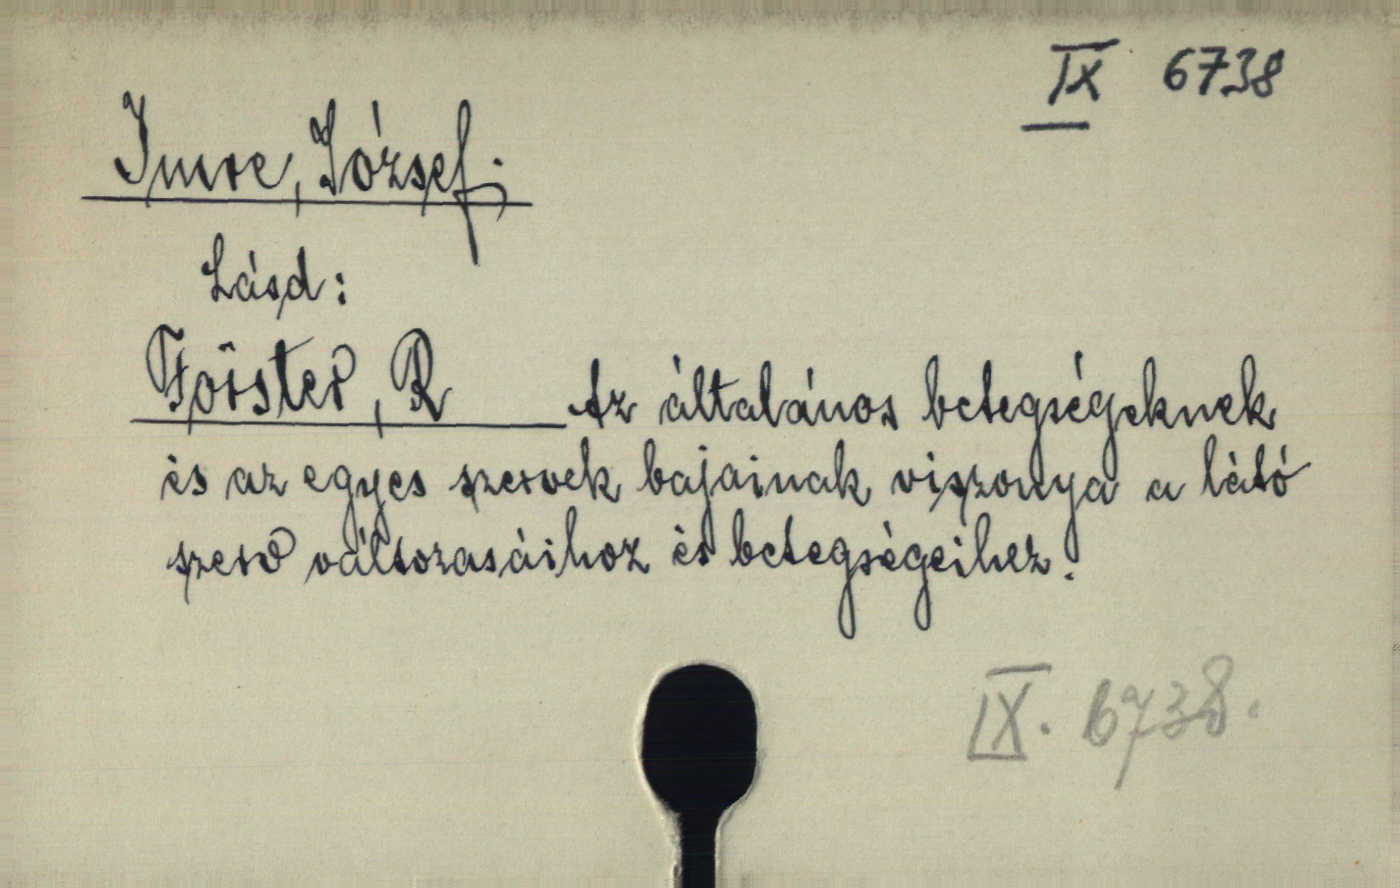 IX 6738
Imre, József.
Lásd:
Förster, R Az általános betegségeknek
és az egyes szervek bajainak viszonya a látó
szerv változasáihoz és betegségeihez.
IX. 6738.